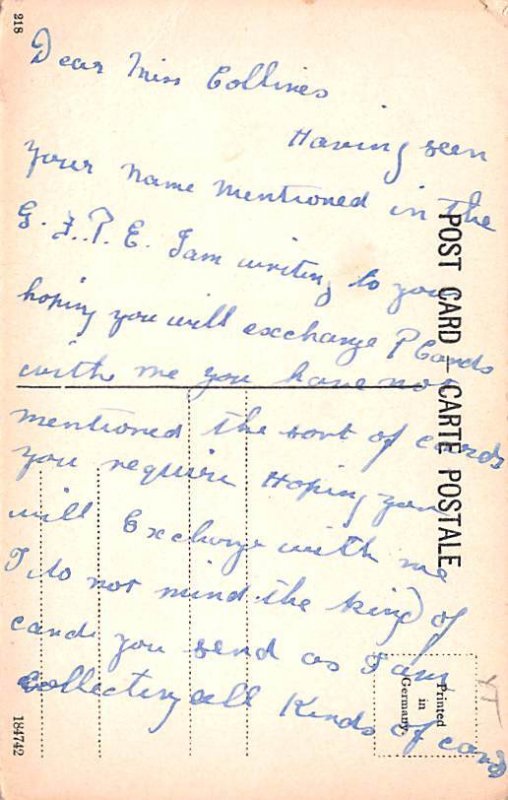 218
Dear Miss Collines
Having seen
your name mentioned in the
G. F. P. E. I am writing to you
hoping you will exchange P Cards
with me you have not
mentioned the sort of cards
you require Hoping you
will Exchange with me
I do not mind the kind of
cards you send as I am
collecting all Kinds of cards
POST CARD — CARTE POSTALE
Printed
in
Germany.
YT
184742